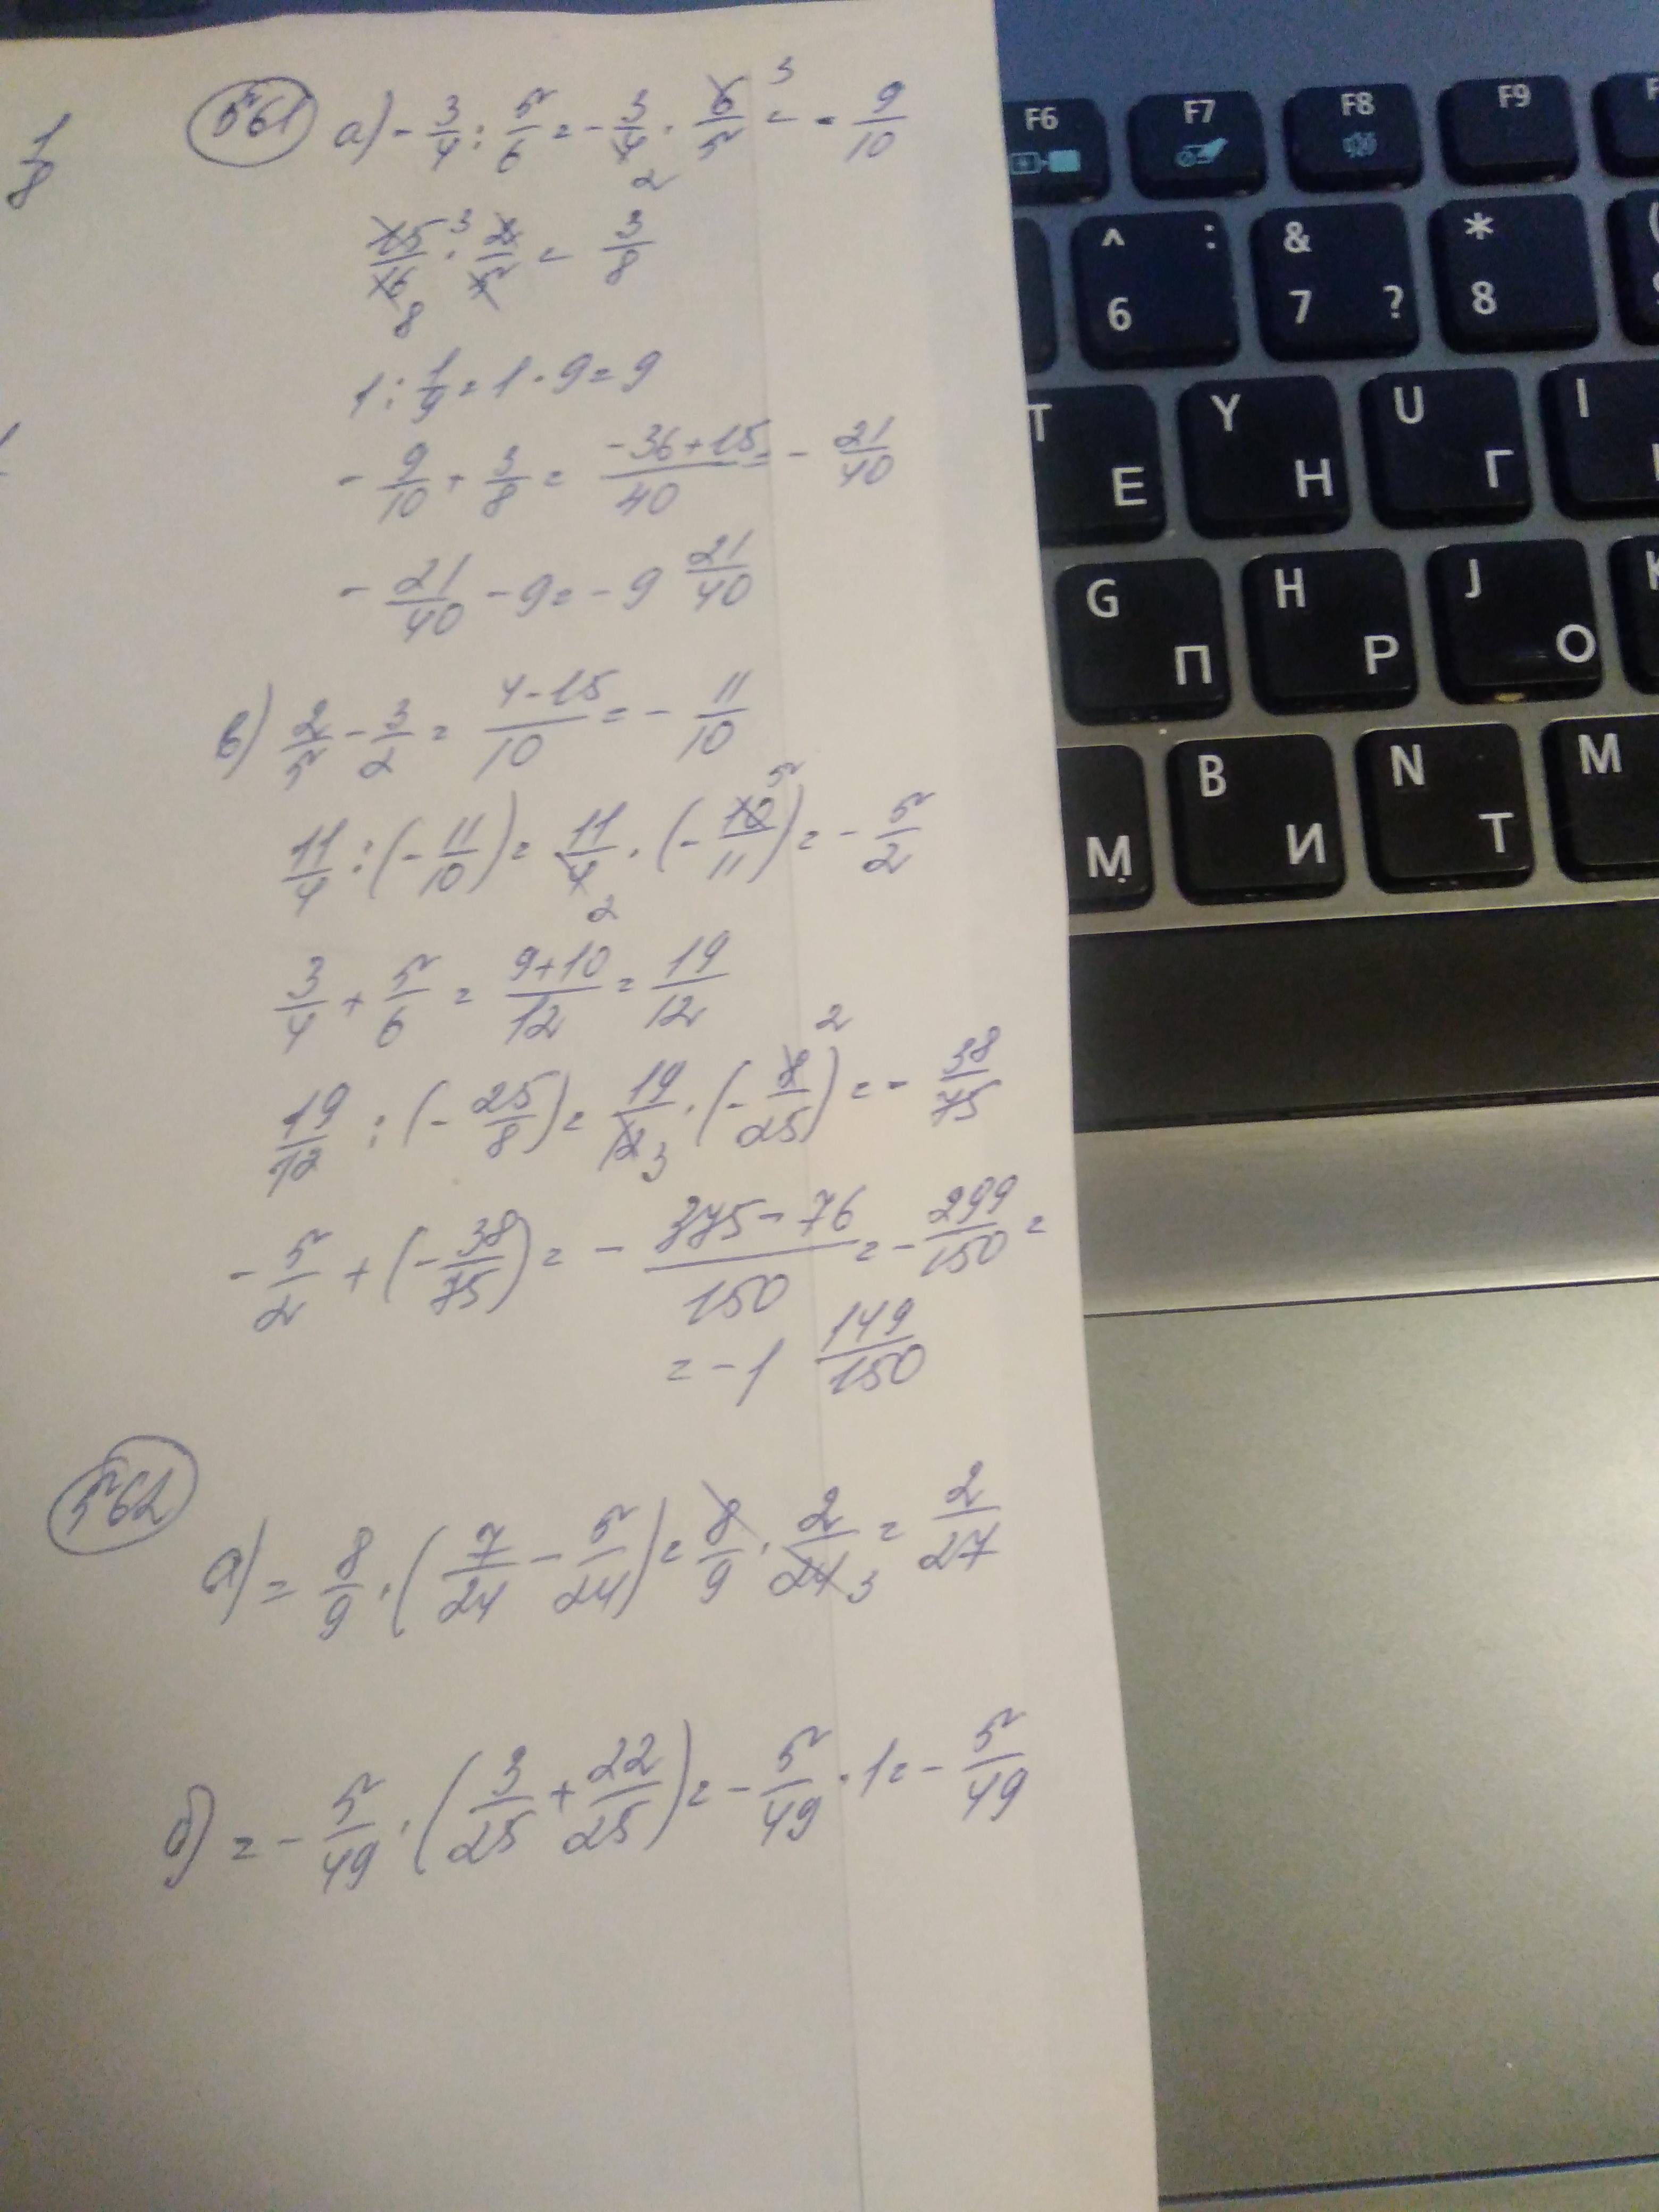 1/8
561 а) - 3/4 : 5/6 = - 3/4 · 6/5 = - 9/10
3
2
15/16 · 2/5 = 3/8
3
8
1 : 1/9 = 1 · 9 = 9
- 9/10 + 3/8 = (-36+15)/40 = - 21/40
- 21/40 - 9 = - 9 21/40
в) 2/5 - 3/2 = (4-15)/10 = - 11/10
11/4 : (- 11/10) = 11/4 · (- 10/11) = - 5/2
5
2
3/4 + 5/6 = (9+10)/12 = 19/12
19/12 : (- 25/8) = 19/12 · (- 8/25) = - 38/75
2
3
- 5/2 + (- 38/75) = - (375-76)/150 = - 299/150 =
= - 1 149/150
562
а) = 8/9 · (7/24 - 5/24) = 8/9 · 2/24 = 2/27
3
б) = - 5/49 · (3/25 + 22/25) = - 5/49 · 1 = - 5/49
F6 F7 F8 F9
^ : 6 & 7 ? * 8
T Е Y Н U Г I
G П H Р J О K
М B И N Т M